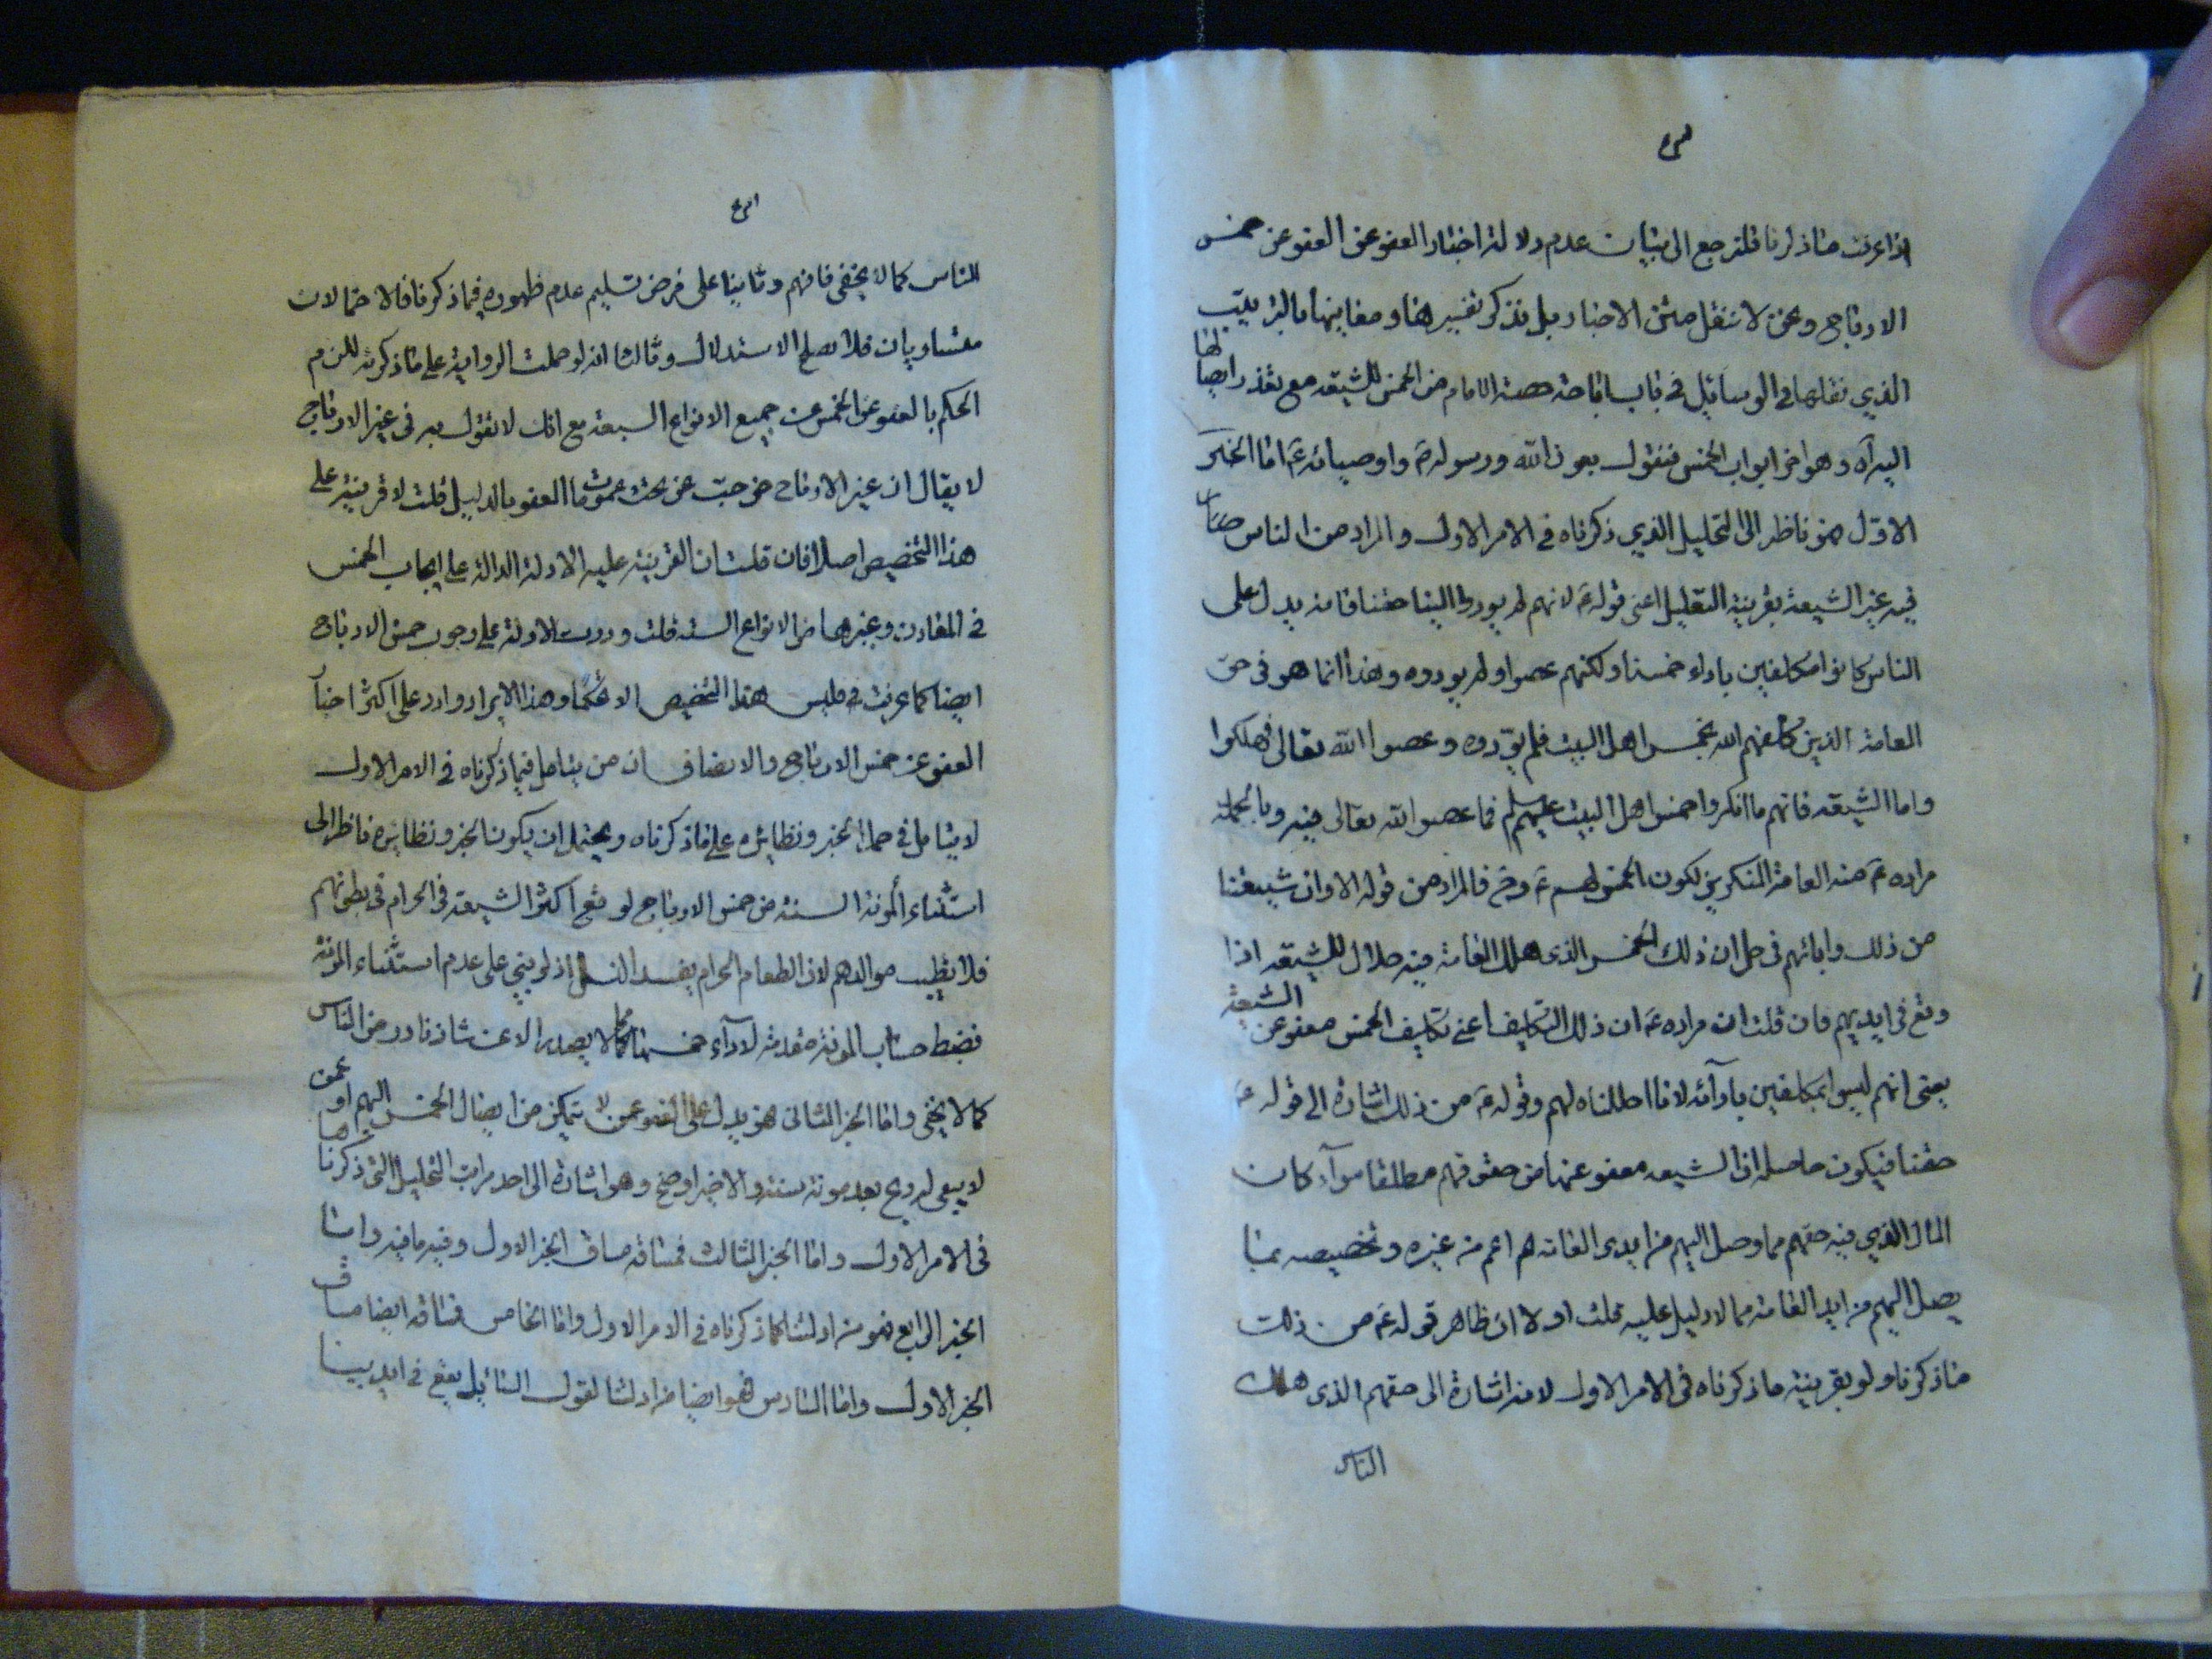 اذا عرفت ما ذكرنا فلنرجع الى بيان عدم دلالة اخبار العفو عن العفو عن خمس
الارباح ونحن لا ننقل متن الاخبار بل نذكر تفسيرها ومعانيها بالترتيب
الذي نقلها في الوسائل في باب اباحة حصة الامام من الخمس للشيعة مع تعذر ايصالها
اليه آه وهو اخر ابواب الخمس فنقول بعون الله ورسوله ص واوصيائه ع اما الخبر
الاول فهو ناظر الى التحليل الذي ذكرناه في الامر الاول والمراد من الناس
فيه غير الشيعة بقرينة التعليل اعني قوله ع لانهم لم يودوا الينا حقنا فانه يدل على
الناس كانوا مكلفين باداء خمسنا ولكنهم عصوا ولم يودوه وهذا انما هو في حق
العامة الذين كلفهم الله بخمس اهل البيت فلم يؤدوه وعصوا الله تعالى فهلكوا
واما الشيعة فانهم ما انكروا خمس اهل البيت عليهم سلم فما عصوا الله تعالى فيه وبالجملة
مراده ع منه العامة المنكرين لكون الخمس لهم ع وح فالمراد من قوله الا وان شيعتنا
من ذلك وابائهم في حل ان ذلك الخمس الذي هلك العامة فيه حلال للشيعة اذا
وقع في ايديهم فان قلت ان مراده ع ان ذلك التكليف اعني تكليف الخمس معفو عن الشيعة
يعني انهم ليسوا بمكلفين بادآئه لانا احللناه لهم وقوله ع من ذلك اشارة الى قوله ع
حقنا فيكون حاصله ان الشيعة معفو عنها من حقوقهم مطلقا سوآء كان
المال الذي فيه حقهم مما وصل اليهم من ايدي العامة ام اعم من غيره وتخصيصه بما
يصل اليهم من ايد العامة مما لا دليل عليه قلت اولا ان ظاهر قوله ع من ذلك
ما ذكرنا ولو بقرينة ما ذكرناه في الامر الاول لانه اشارة الى حقهم الذي هلك
الناس
الناس كما لا يخفى فافهم وثانيا على فرض تسليم عدم ظهوره فيما ذكرنا فالاحتمالان
متساويان فلا يصلح الاستدلال وثالثا انه لو حملت الرواية على ما ذكرته للزم
الحكم بالعفو عن الخمس عن جميع الانواع السبعة مع انك لا تقول به في غير الارباح
لا يقال ان غير الارباح خرجت عن تحت عموم العفو بالدليل قلت لا قرينة على
هذا التخصيص اصلا فان قلت ان القرينة عليه الادلة الدالة على ايجاب الخمس
في المعادن وغيرها من الانواع الستة قلت وردت الادلة على وجوب خمس الارباح
ايضا كما عرفت فليس هذا التخصيص الا تحكما وهذا الايراد وارد على اكثر اخبار
العفو عن خمس الارباح والانصاف ان من يتامل فيما ذكرناه في الامر الاول
لا يتامل في حمل الخبر ونظائره على ما ذكرناه ويحتمل ان يكون الخبر ونظائره ناظرا الى
استثناء المونة السنة من خمس الارباح لوقع اكثر الشيعة في الحرام في بطونهم
فلا تطيب موالدهم لان الطعام الحرام يفسد النسل اذ لو بني على عدم استثناء المونة
فضبط حساب المونة مقدمة لادآء خمسنا لا يصدر الا عن شاذ نادر من الناس
كما لا يخفى واما الخبر الثاني فهو يدل على العفو عمن لا يتمكن من ايصال الخمس اليهم او عمن
لا يبقى له ربح بعد مونة سنته والاخير اوضح وهو اشارة الى احد مراتب التحليل التي ذكرناها
في الامر الاول واما الخبر الثالث فمساقه مساق الخبر الاول وفيه ما فيه واما
الخبر الرابع فهو من ادلتنا كما ذكرناه في الامر الاول واما الخامس فمساقه ايضا مساق
الخبر الاول واما السادس فهو ايضا من ادلتنا لقول السائل يقع في ايدينا